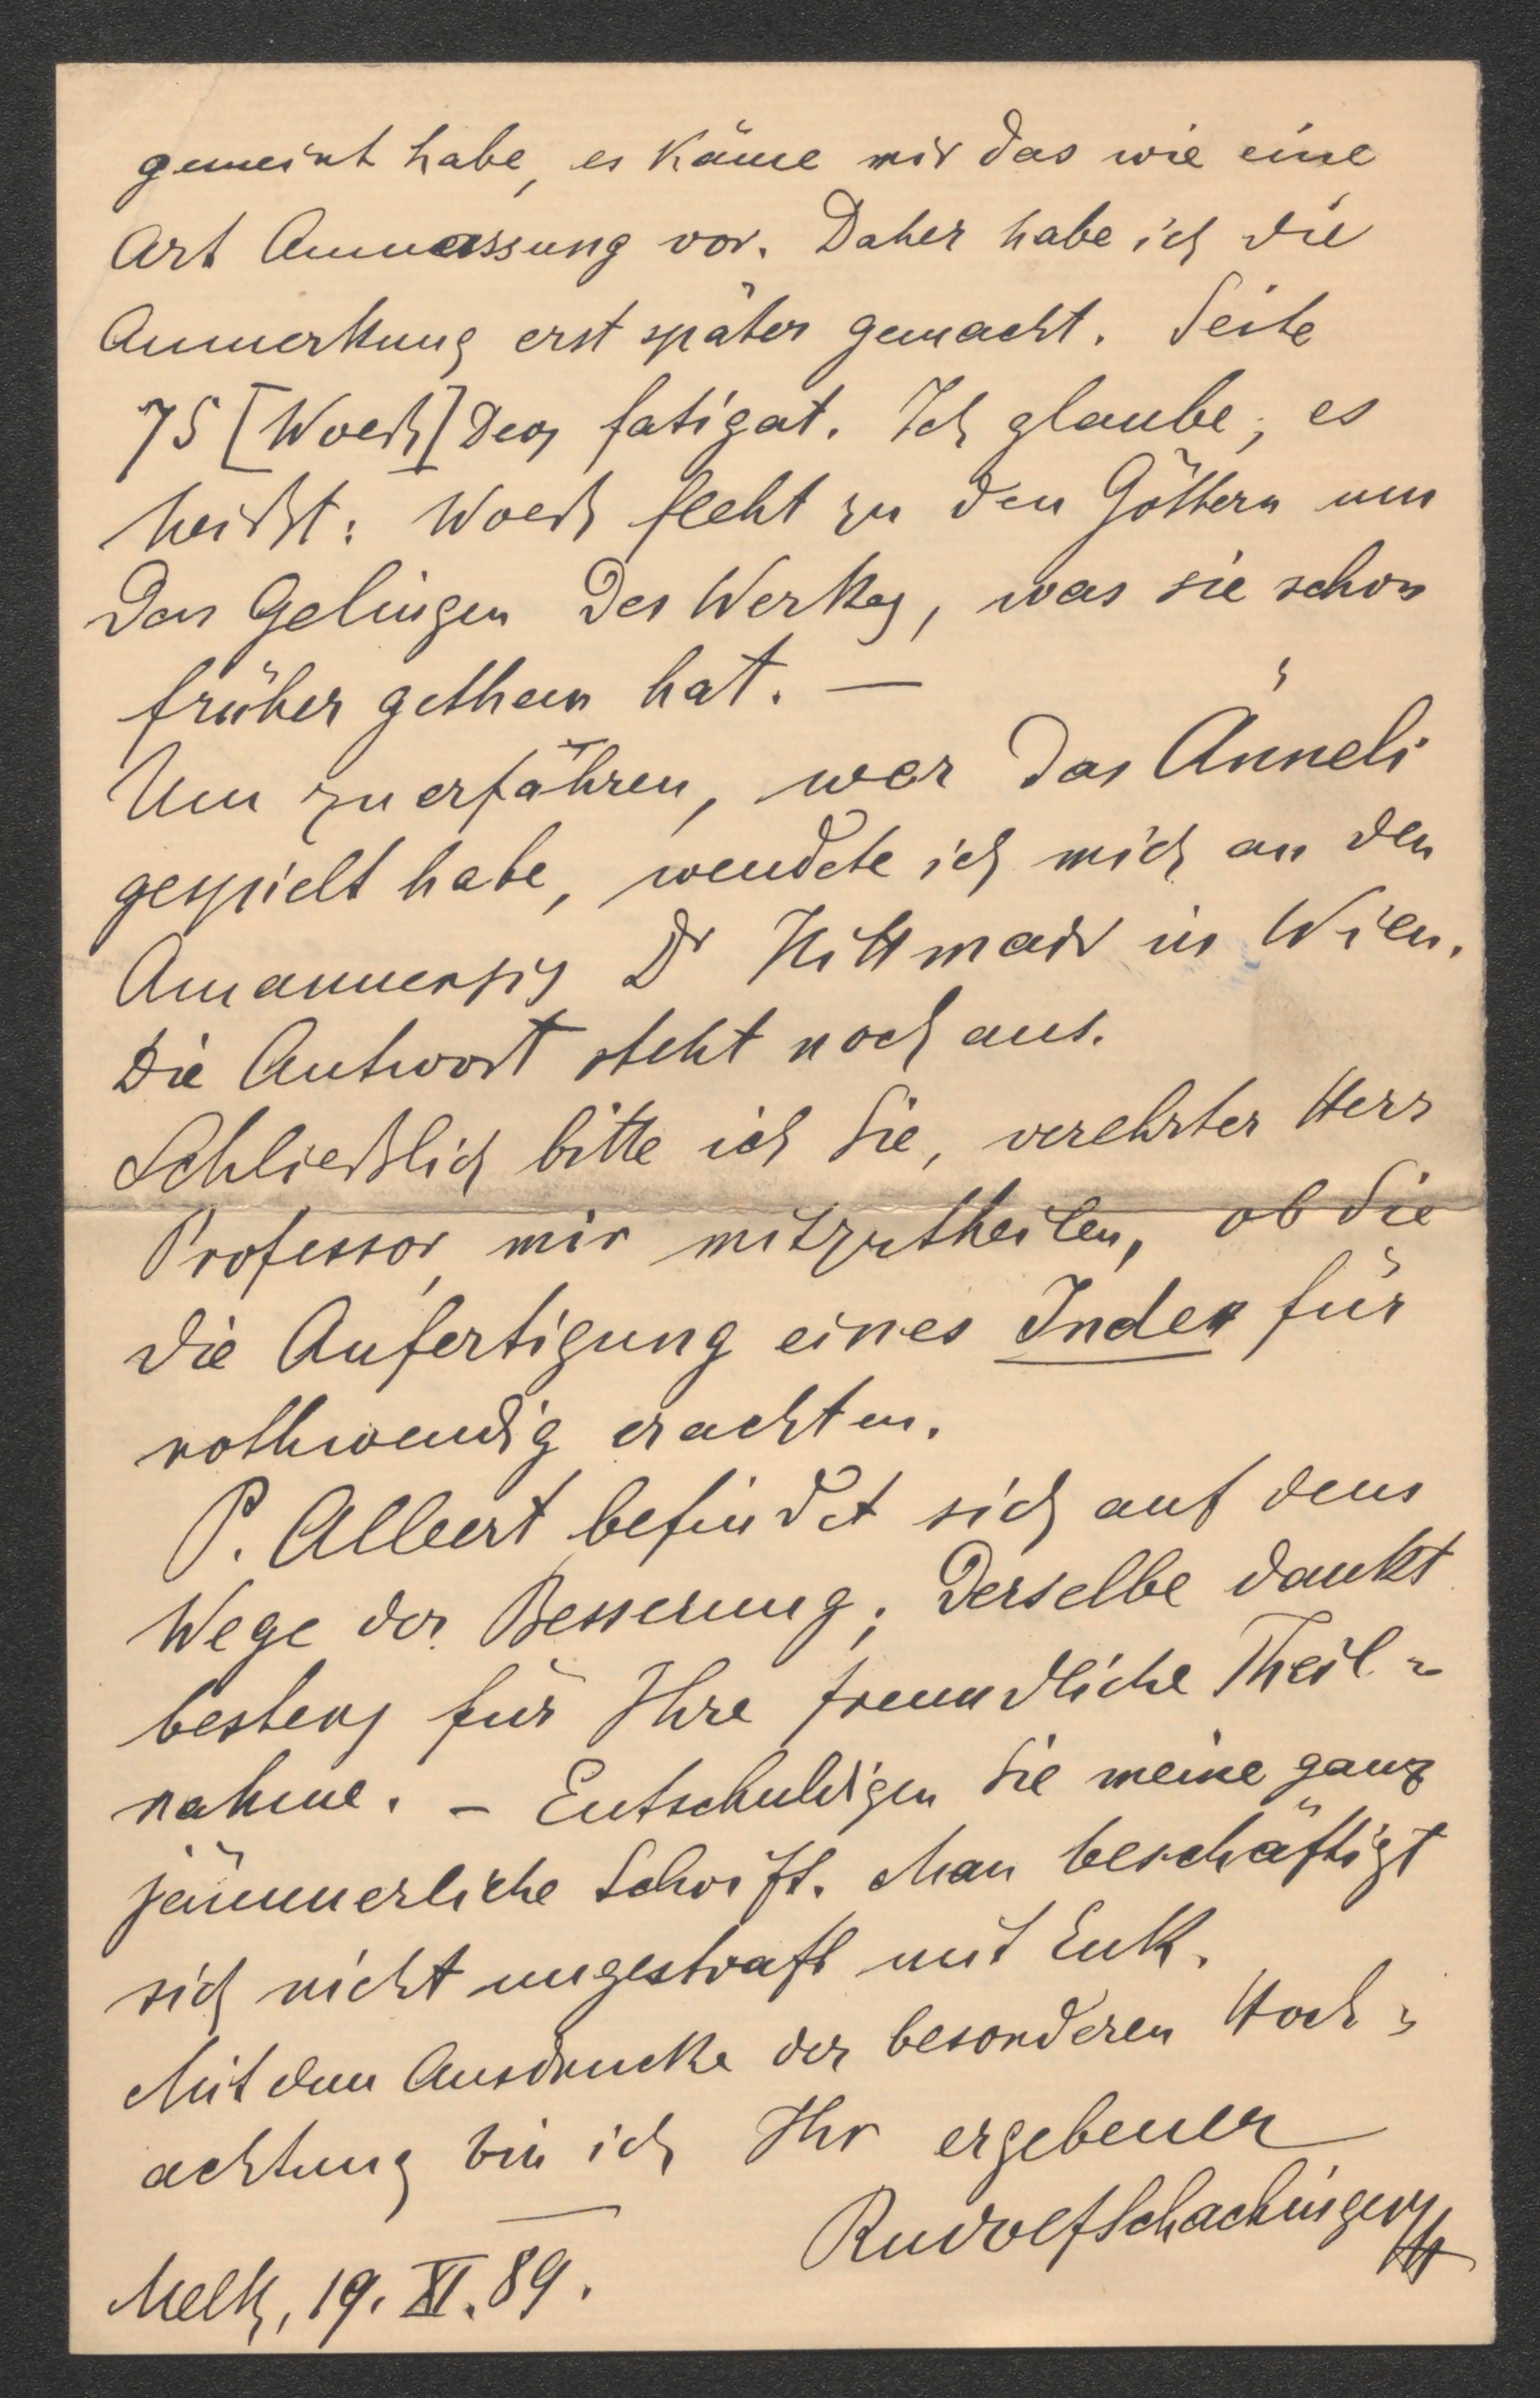 gemeint habe, es käme mir das wie eine
Art Anmassung vor. Daher habe ich die
Anmerkung erst später gemacht. Seite
75 [Woch] Deos fatigat. Ich glaube, es
heißt: Woch fleht zu den Göttern um
das Gelingen des Werkes, was sie schon
früher gethan hat. —
Um zu erfahren, wer das Änneli
gespielt habe, wendete ich mich an den
Amanuensis Dr Hittmair in Wien.
Die Antwort steht noch aus.
Schließlich bitte ich Sie, verehrter Herr
Professor, mir mitzutheilen, ob Sie
die Anfertigung eines Index für
nothwendig erachten.
P. Albert befindet sich auf dem
Wege der Besserung; Derselbe dankt
bestens für Ihre freundliche Theil-
nahme. – Entschuldigen Sie meine ganz
jämmerliche Schrift. Man beschäftigt
sich nicht ungestraft mit Enk.
Mit dem Ausdrucke der besonderen Hoch-
achtung bin ich Ihr ergebener
Rudolf Schachinger
Melk, 19. XI. 89.